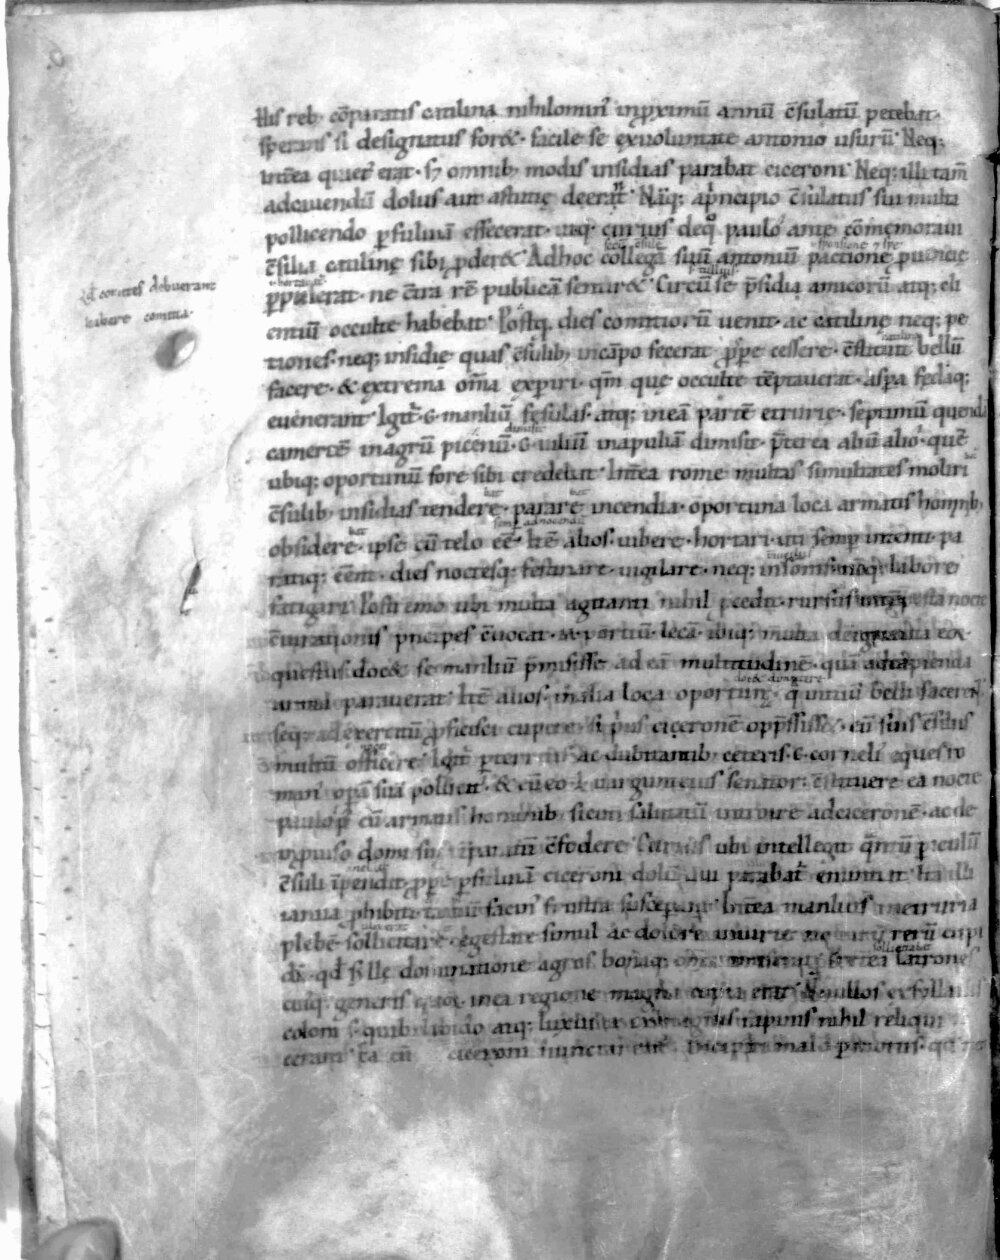 His reb; cōparatis catilina nihilomin' in ꝓximū annū c̄sulatū petebat·
sperans si designatus for&· facile se ex uoluntate antonio usurū· Neq;
intēa quiet' erat· sꝫ omnib; modis insidias parabat ciceroni· Neq; illi tam̄
ad cauendū dolus aut astutię deerant· Nāq; a p'ncipio c̄sulatus sui multa
pollicendo ꝑ fuluiā effecerat· utiq; curius de q° paulo ante cōmemoraui
c̄silia catilinę sibi ꝓder&· Ad hoc collegā suū antoniū pactione ꝓuincię
ꝑpulerat· ne c̄tra rē publicā sentir&· Circū se p̄sidia amicorū atq; cli
entiū occulte habebat· Postq̄ dies comitiorū uenit· ac catilinę neq; pe
titiones· neq; insidię quas c̄sulib; in cāpo fecerat ꝓspe cessere· c̄stituit bellū
facere· & extrema om̄a exꝑiri· qm̄ quę occulte tēptauerat· aspa fedaq;
euenerant· Igit̄ ·c· manliū fesulas· atq; in eā partē etrurię· septimiū quendā
camertē in agrū picenū· c· iuliū in apuliā dimisit· p̄terea aliū alio· quē
ubiq; oportunū fore sibi credebat· Intēa rome multas simul
c̄sulib; insidias tendere· parare incendia· oportuna loca armatis hominib;
obsidere· ipse cū telo eē· Itē alios iubere· hortari· uti semp̄ intenti· pa
ratiq; eēnt· dies noctesq; festinare· uigilare· neq; insomniis neq; labore
fatigari· Postremo ubi multa agitanti nihil ꝓcedit· rursus
c̄iurationis p'ncipes c̄uocat· ꝑ portiū lecā· ibiq; multa de ignauia eoꝝ
questus· doc& se manliū p̄misisse ad eā multitudinē· quā ad capienda
arma parauerat· Itē alios in alia loca oportuna· q̄ initiū belli facerent·
seq; ad exercitū ꝓficisci cupere· si p'us ciceronē opp̄ssiss&· eū suis c̄siliis
multū officere· Igit̄ pterritis ac dubitantib; ceteris· c· corneli' eques ro
man' opā suā pollicit'· & cū eo ·l· uargunteius senator· c̄stituere ea nocte
paulo p' cū armatis hominib; sicuti salutatū introire ad ciceronē· ac de
inꝓuiso domi suę c̄fodere· Curius ubi intellegit q̄ntū ꝑiculū
c̄suli īpendit· ꝓpe ꝑ fuluiā ciceroni dolū qui parabat̄ enuntiat· Ita illi
ianua ꝓhibiti· tantū facin' frustra susceperant· Intēa manlius in etruria
plebē sollicitare· egestate simul ac dolore iniurię rerū cupi
dā· qd̄ sullę dominatione agros bonaq; latrones
cuiq; generis quoꝝ in ea regione magna copia erat· Nonnullos ex sullanis
coloniis quib; libido atq; luxuria ex magnis rapinis nihil reliqui
fecerant· Ea cū ciceroni nuntiarent'
qd̄ comites debuerant
habere comma·